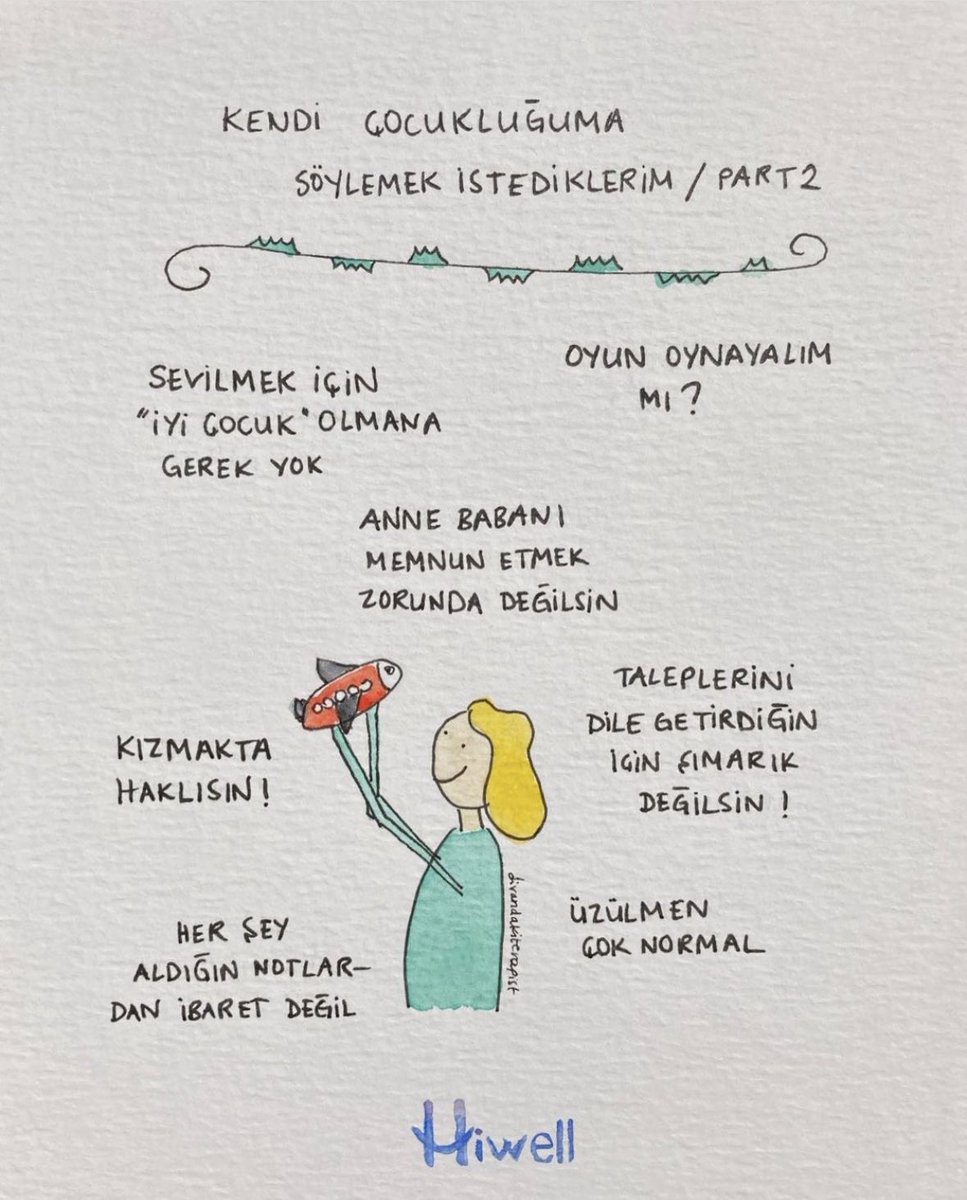 KENDİ ÇOCUKLUĞUMA
SÖYLEMEK İSTEDİKLERİM / PART 2
SEVİLMEK İÇİN
"İYİ ÇOCUK" OLMANA
GEREK YOK
OYUN OYNAYALIM
MI?
ANNE BABANI
MEMNUN ETMEK
ZORUNDA DEĞİLSİN
KIZMAKTA
HAKLISIN!
TALEPLERİNİ
DİLE GETİRDİĞİN
İÇİN ŞIMARIK
DEĞİLSİN !
HER ŞEY
ALDIĞIN NOTLAR-
DAN İBARET DEĞİL
ÜZÜLMEN
ÇOK NORMAL
divandakiterapist
Hiwell